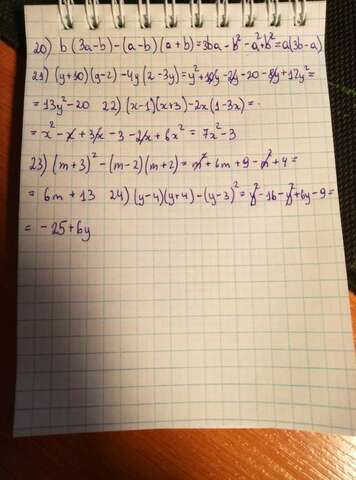 20) b(3a-b)-(a-b)(a+b)=3ba-b²-a²+b²=a(3b-a)
21) (y+10)(y-2)-4y(2-3y)=y²+10y-2y-20-8y+12y²=
=13y²-20 22) (x-1)(x+3)-2x(1-3x)=
=x²-x+3x-3-2x+6x²=7x²-3
23) (m+3)²-(m-2)(m+2)=m²+6m+9-m²+4=
=6m+13 24) (y-4)(y+4)-(y-3)²=y²-16-y²+6y-9=
=-25+6y